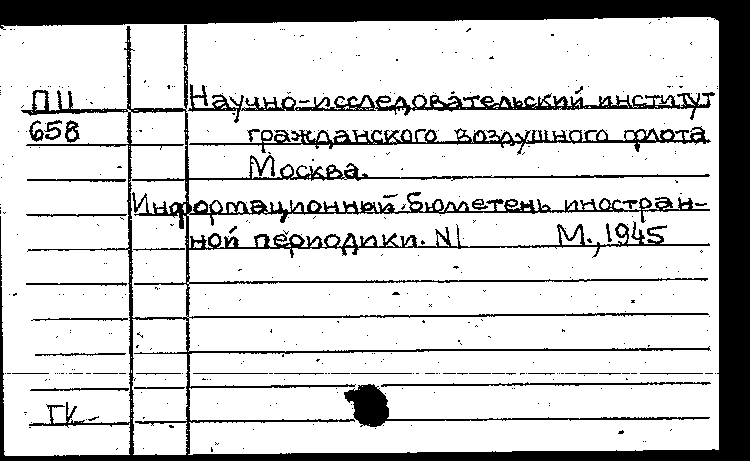 ПII Научно-исследовательский институт
658 гражданского воздушного флота
Москва.
Информационный бюллетень иностран-
ной периодики. N1 М., 1945
ГК